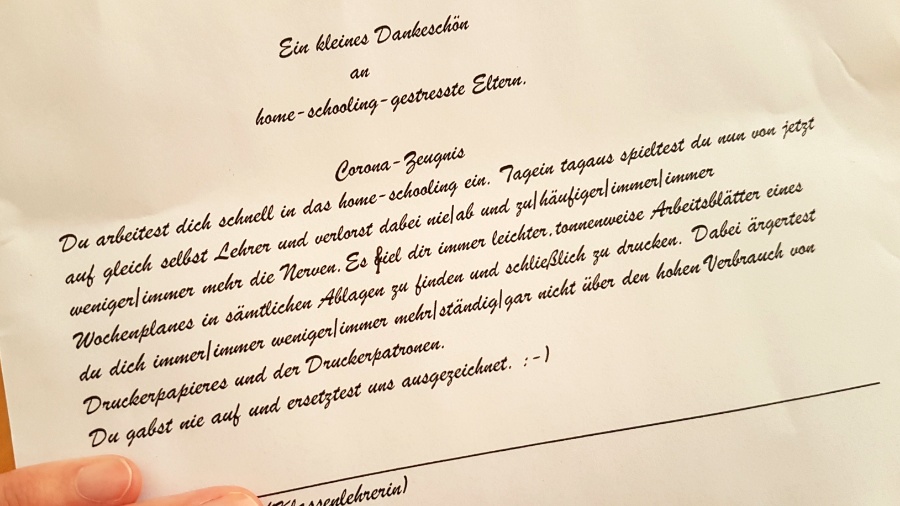 Ein kleines Dankeschön
an
home-schooling-gestresste Eltern.
Corona-Zeugnis
Du arbeitest dich schnell in das home-schooling ein. Tagein tagaus spieltest du nun von jetzt
auf gleich selbst Lehrer und verlorst dabei nie|ab und zu|häufiger|immer|immer
weniger|immer mehr die Nerven. Es fiel dir immer leichter, tonnenweise Arbeitsblätter eines
Wochenplanes in sämtlichen Ablagen zu finden und schließlich zu drucken. Dabei ärgertest
du dich immer|immer weniger|immer mehr|ständig|gar nicht über den hohen Verbrauch von
Druckerpapieres und der Druckerpatronen.
Du gabst nie auf und ersetztest uns ausgezeichnet. :-)
(Klassenlehrerin)